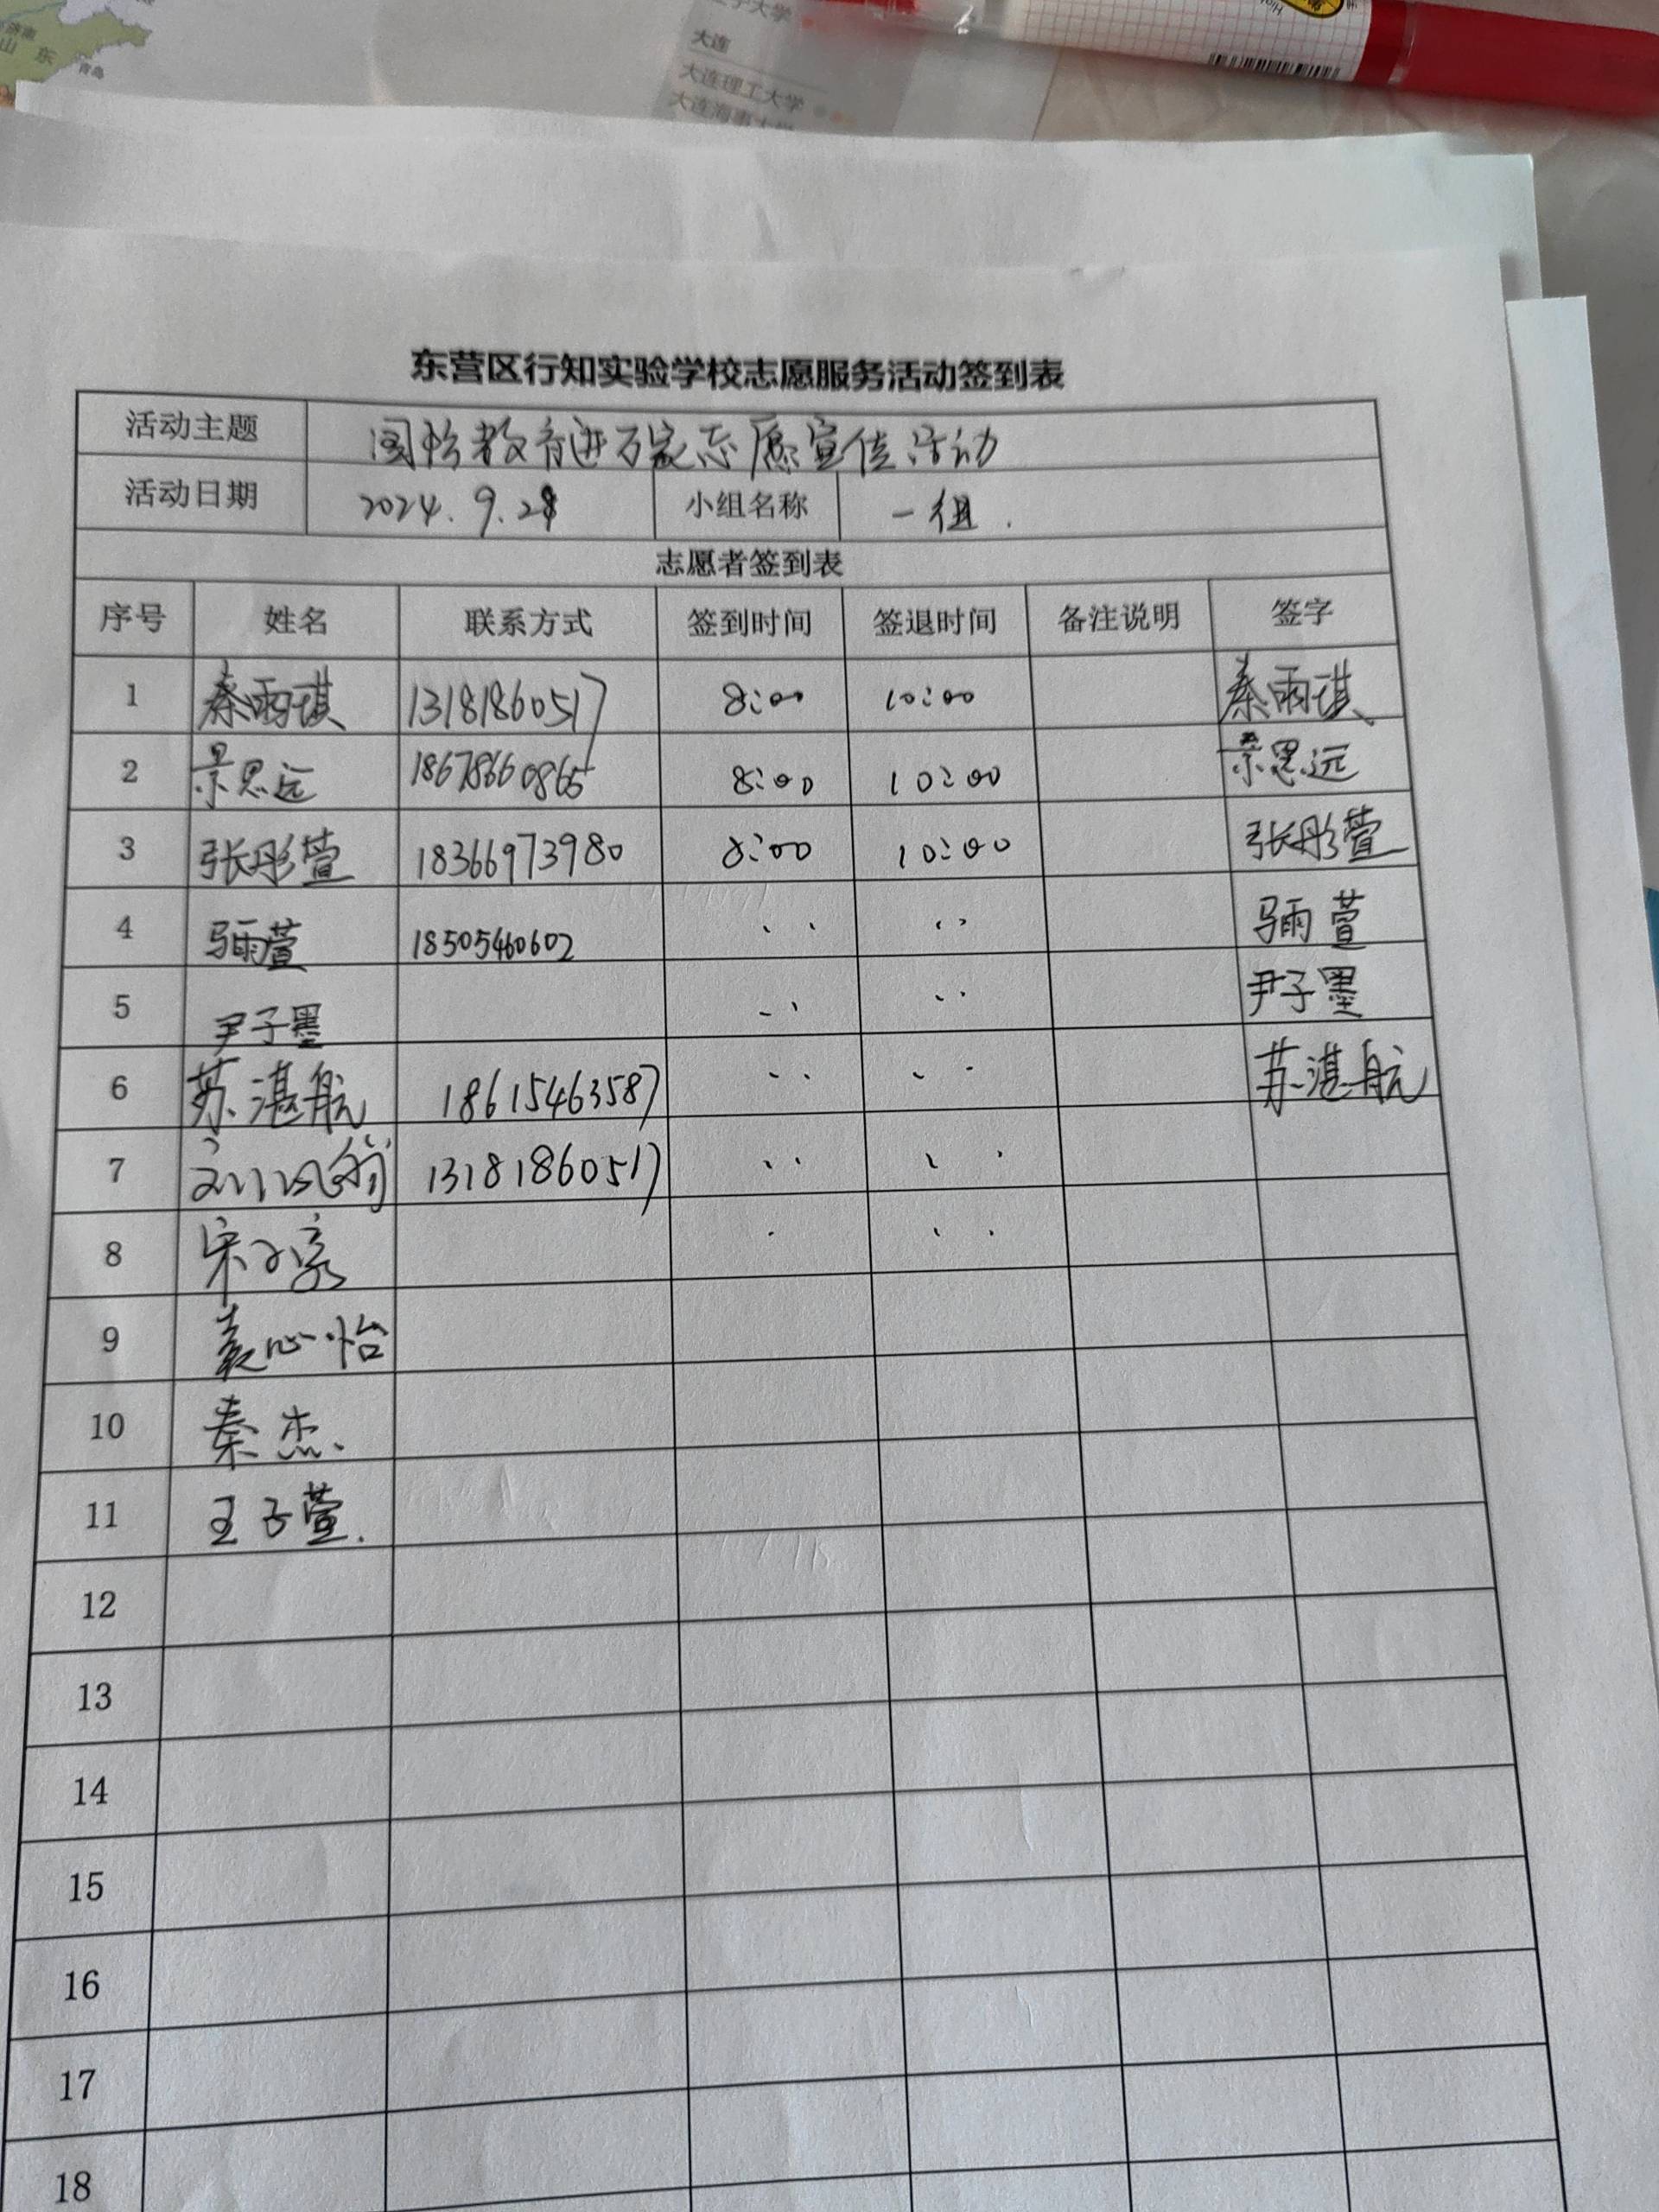 山东
青岛
大连
大连理工大学
大连海事大学
东营区行知实验学校志愿服务活动签到表
活动主题 国防教育进万家志愿宣传活动
活动日期 2024.9.28 小组名称 一组.
志愿者签到表
序号 姓名 联系方式 签到时间 签退时间 备注说明 签字
1 秦雨琪 13181860517 8:00 10:00 秦雨琪
2 景思远 18678660865 8:00 10:00 景思远
3 张彤萱 18366973980 8:00 10:00 张彤萱
4 马雨萱 18505460602 、、 、、 马雨萱
5 尹子墨 、、 、、 尹子墨
6 苏湛航 18615463587 、、 、、 苏湛航
7 13181860517 、、 、、
8 宋 、 、、
9 姜心怡
10 秦杰
11 王子萱.
12
13
14
15
16
17
18